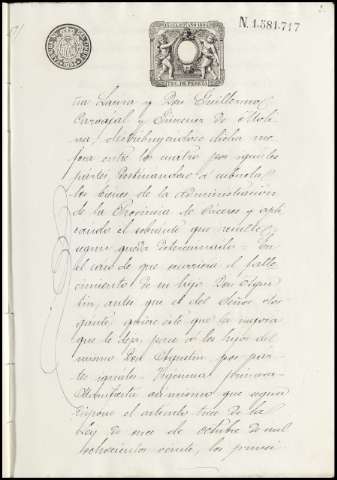 N. 1.581.717
tra Laura y Don Guillermo
Carvajal y Jimenez de Moli-
na, distribuyendose dicha me-
jora entre los cuatro por iguales
partes,
los bienes de la administración
de la Provincia de Caceres y apli-
cando el sobrante que resulte,
segun queda determinado = En
el caso de que ocurriera el falle-
cimiento de su hijo Don Agus-
tin, antes que el del Señor otor-
gante, quiere éste que la mejora
que le deja, pase á los hijos del
mismo Don Agustin, por par-
tes iguales = Vigesima primera =
Manifiesta asimismo que segun
dispone el articulo trece de la
Ley de once de Octubre de mil
ochocientos veinte, los